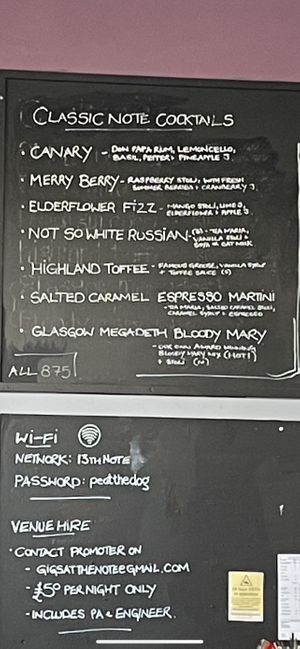 CLASSIC NOTE COCKTAILS
• CANARY - DON PAPA RUM, LEMONCELLO,
BASIL, PEPPER & PINEAPPLE J.
• MERRY BERRY - RASPBERRY STOLI, WITH FRESH
SUMMER BERRIES & CRANBERRY J.
• ELDERFLOWER FIZZ - MANGO STOLI, LIME J,
ELDERFLOWER & APPLE J
• NOT SO WHITE RUSSIAN - TIA MARIA,
VANILLA STOLI &
SOYA OR OAT MILK
• HIGHLAND TOFFEE - FAMOUS GROUSE, VANILLA SYRUP
+ TOFFEE SAUCE (S)
• SALTED CARAMEL ESPRESSO MARTINI
- TIA MARIA, SALTED CARAMEL STOLI,
CARAMEL SYRUP & ESPRESSO
• GLASGOW MEGADETH BLOODY MARY
- OUR OWN AWARD WINNING
BLOODY MARY MIX (HOT!)
+ STOLI
ALL 8.75
WI-FI
NETWORK: 13THNOTE
PASSWORD: peatthedog
VENUE HIRE
• CONTACT PROMOTER ON
- GIGSATTHENOTE@GMAIL.COM
- £50 PER NIGHT ONLY
- INCLUDES PA & ENGINEER.